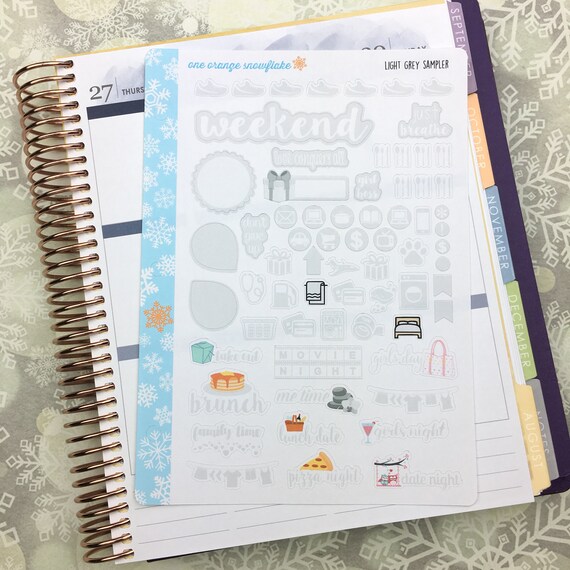 one orange snowflake
LIGHT GREY SAMPLER
27 THURS
SEPTEMBER
OCTOBER
NOVEMBER
DECEMBER
AUGUST
weekend
just
breathe
take out
MOVIE
NIGHT
girls day
brunch
me time
family time
lunch date
girls night
pizza night
date night